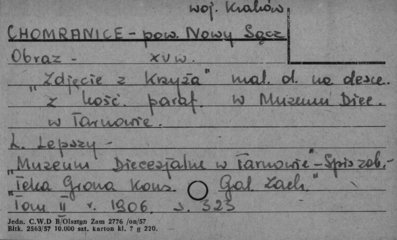 woj. Kraków
CHOMRANICE - pow. Nowy Sącz
Obraz - XV w.
"Zdjęcie z Krzyża" mal. ol. na desce.
z kość. paraf. w Muzeum Diec.
w Tarnowie.
L. Lepszy -
"Muzeum Diecezjalne w Tarnowie" - Spis zab. -
"Teka Grona Kons. Gal. Zach."
Tom II r. 1906. s. 323
Jedn. C.W.D B/Olsztyn Zam 2776 /on/57
Bltk. 2563/57 10.000 szt. karton kl. 7 g 220.